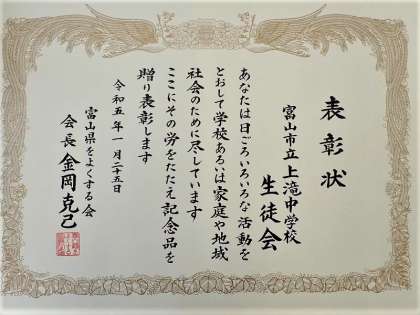 表彰状
富山市立上滝中学校
生徒会
あなたは日ごろいろいろな活動を
とおして学校あるいは家庭や地域
社会のために尽しています
ここにその労をたたえ記念品を
贈り表彰します
令和五年一月二十五日
富山県をよくする会
会長 金岡克己